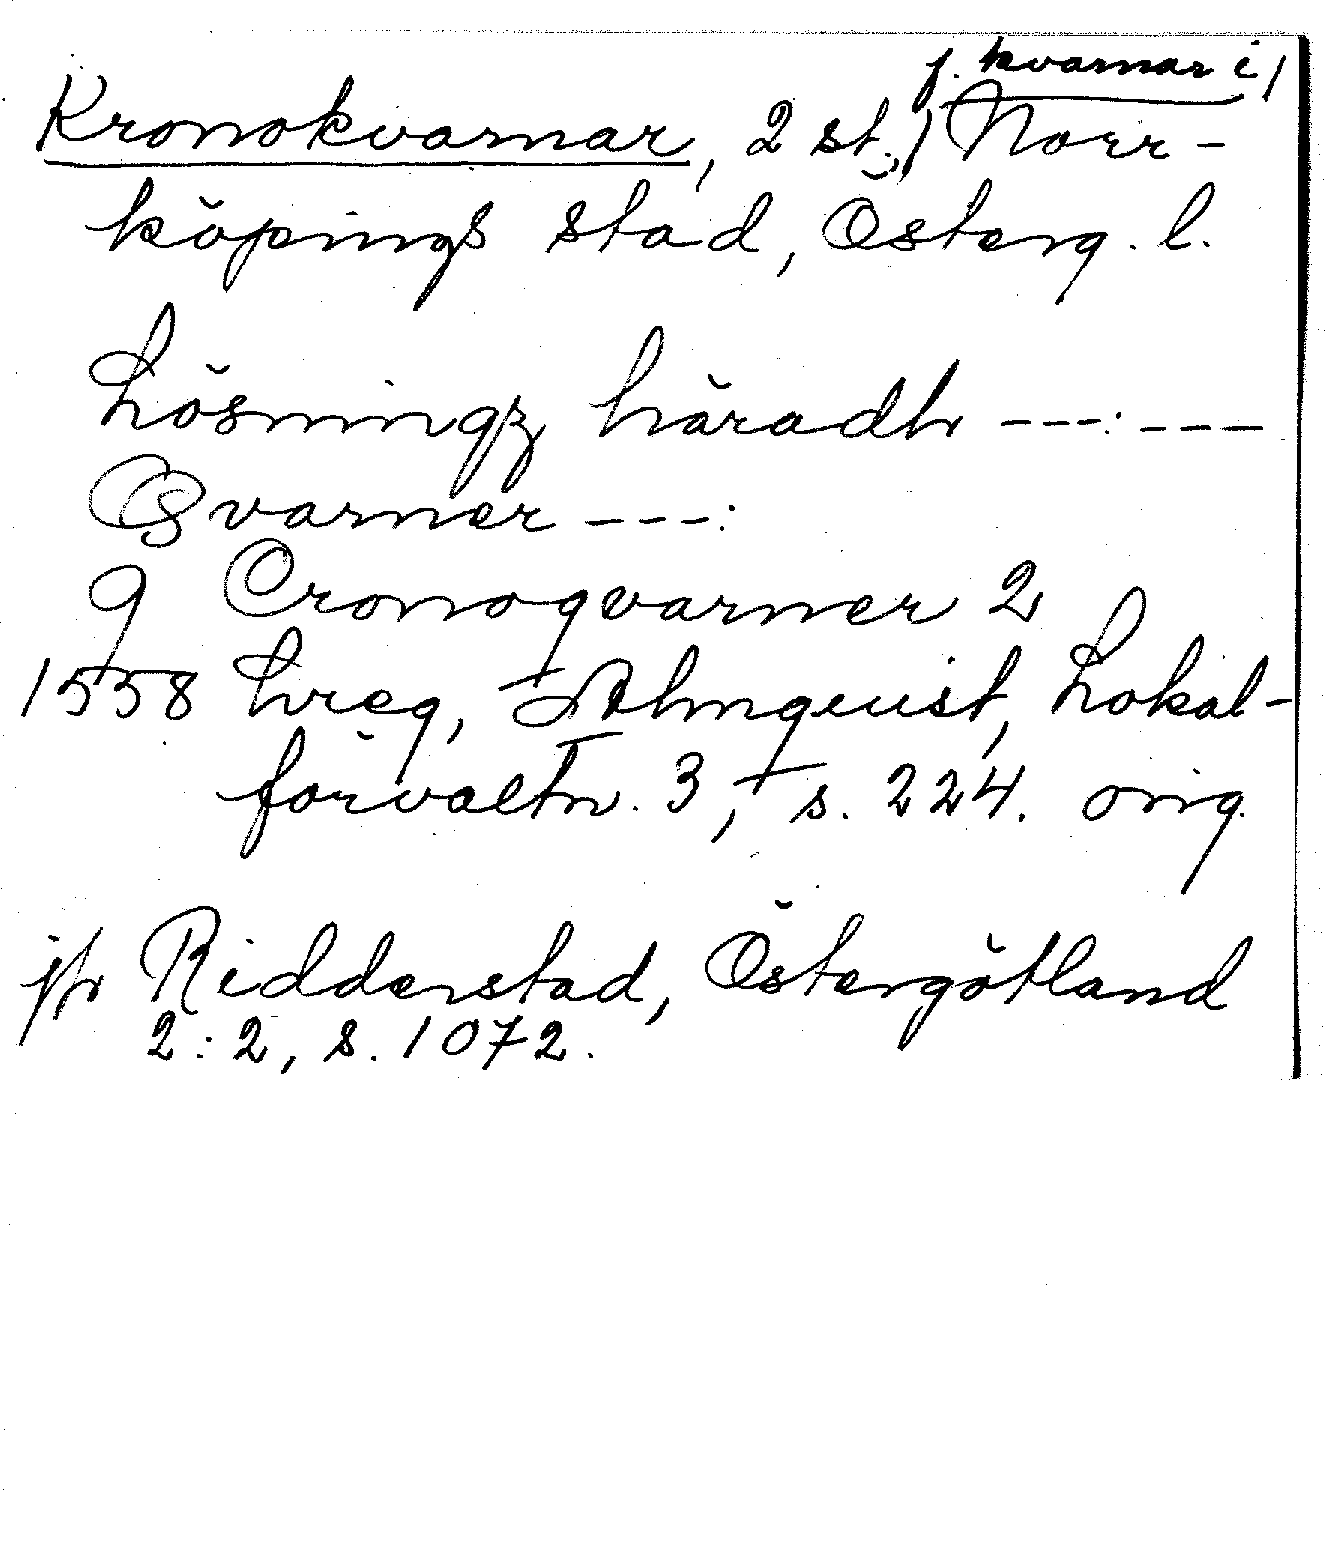 f. kvarnar i
Kronokvarnar, 2 st., Norr-
köpings stad, Österg. l.
Lösningz häradh ---:---
Qvarner ---:
9 Cronoqvarner 2
1558 Lreg, Almquist, Lokal-
förvaltn. 3, s. 224. orig.
jfr Ridderstad, Östergötland
2:2, s. 1072.